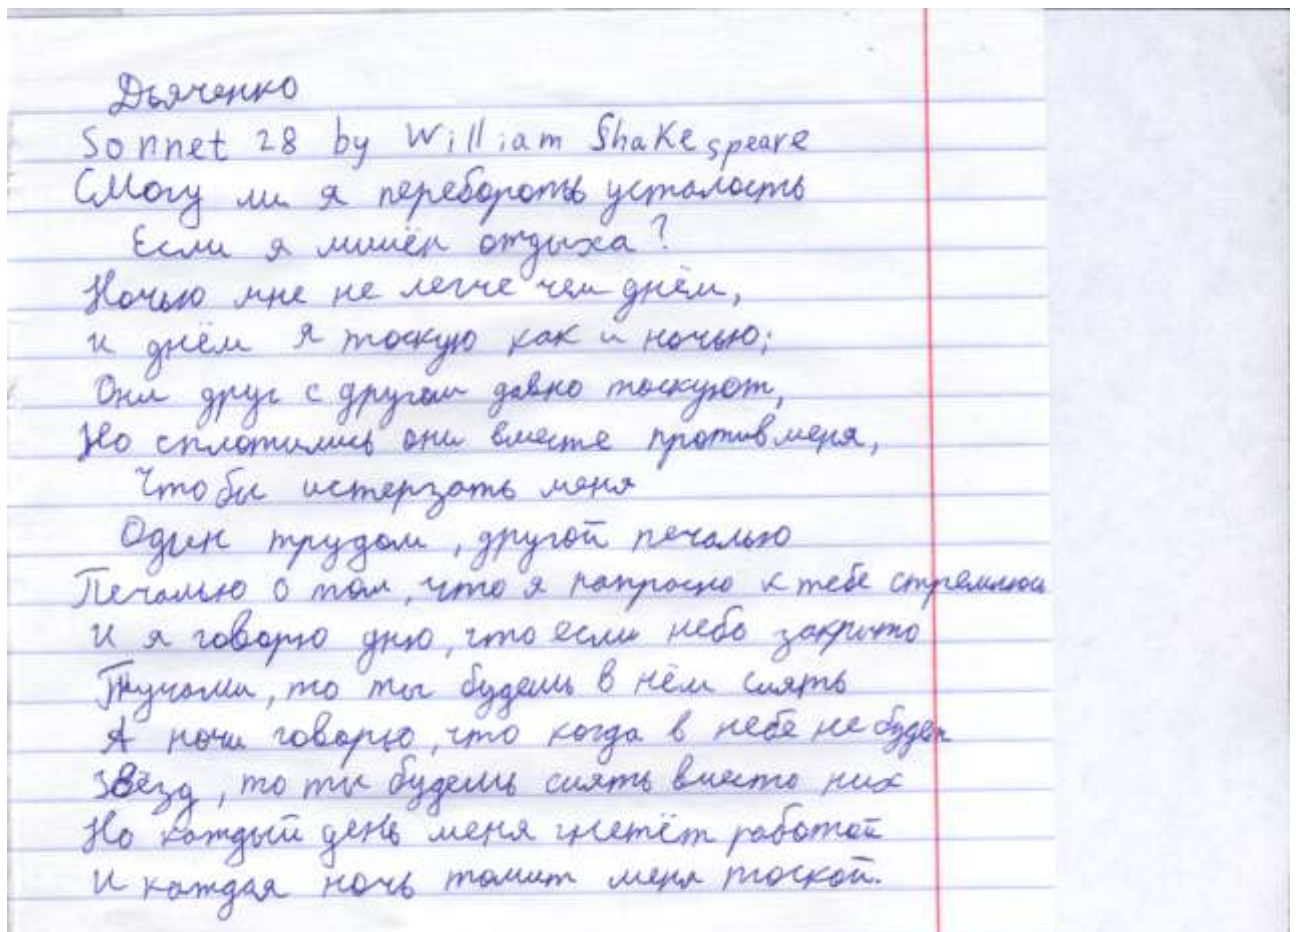 Дьяченко
Sonnet 28 by William Shakespeare
Смогу ли я перебороть усталость
Если я лишён отдыха?
Ночью мне не легче чем днём,
и днём я тоскую как и ночью;
Они друг с другом давно тоскуют,
Но сплотились они вместе против меня,
Чтобы истерзать меня
Один трудом, другой печалью
Печалью о том, что я напрасно к тебе стремлюсь
И я говорю дню, что если небо закрыто
Тучами, то ты будешь в нём сиять
А ночи говорю, что когда в небе не будет
Звёзд, то ты будешь сиять вместо них
Но каждый день меня гнетёт работой
И каждая ночь томит меня тоской.